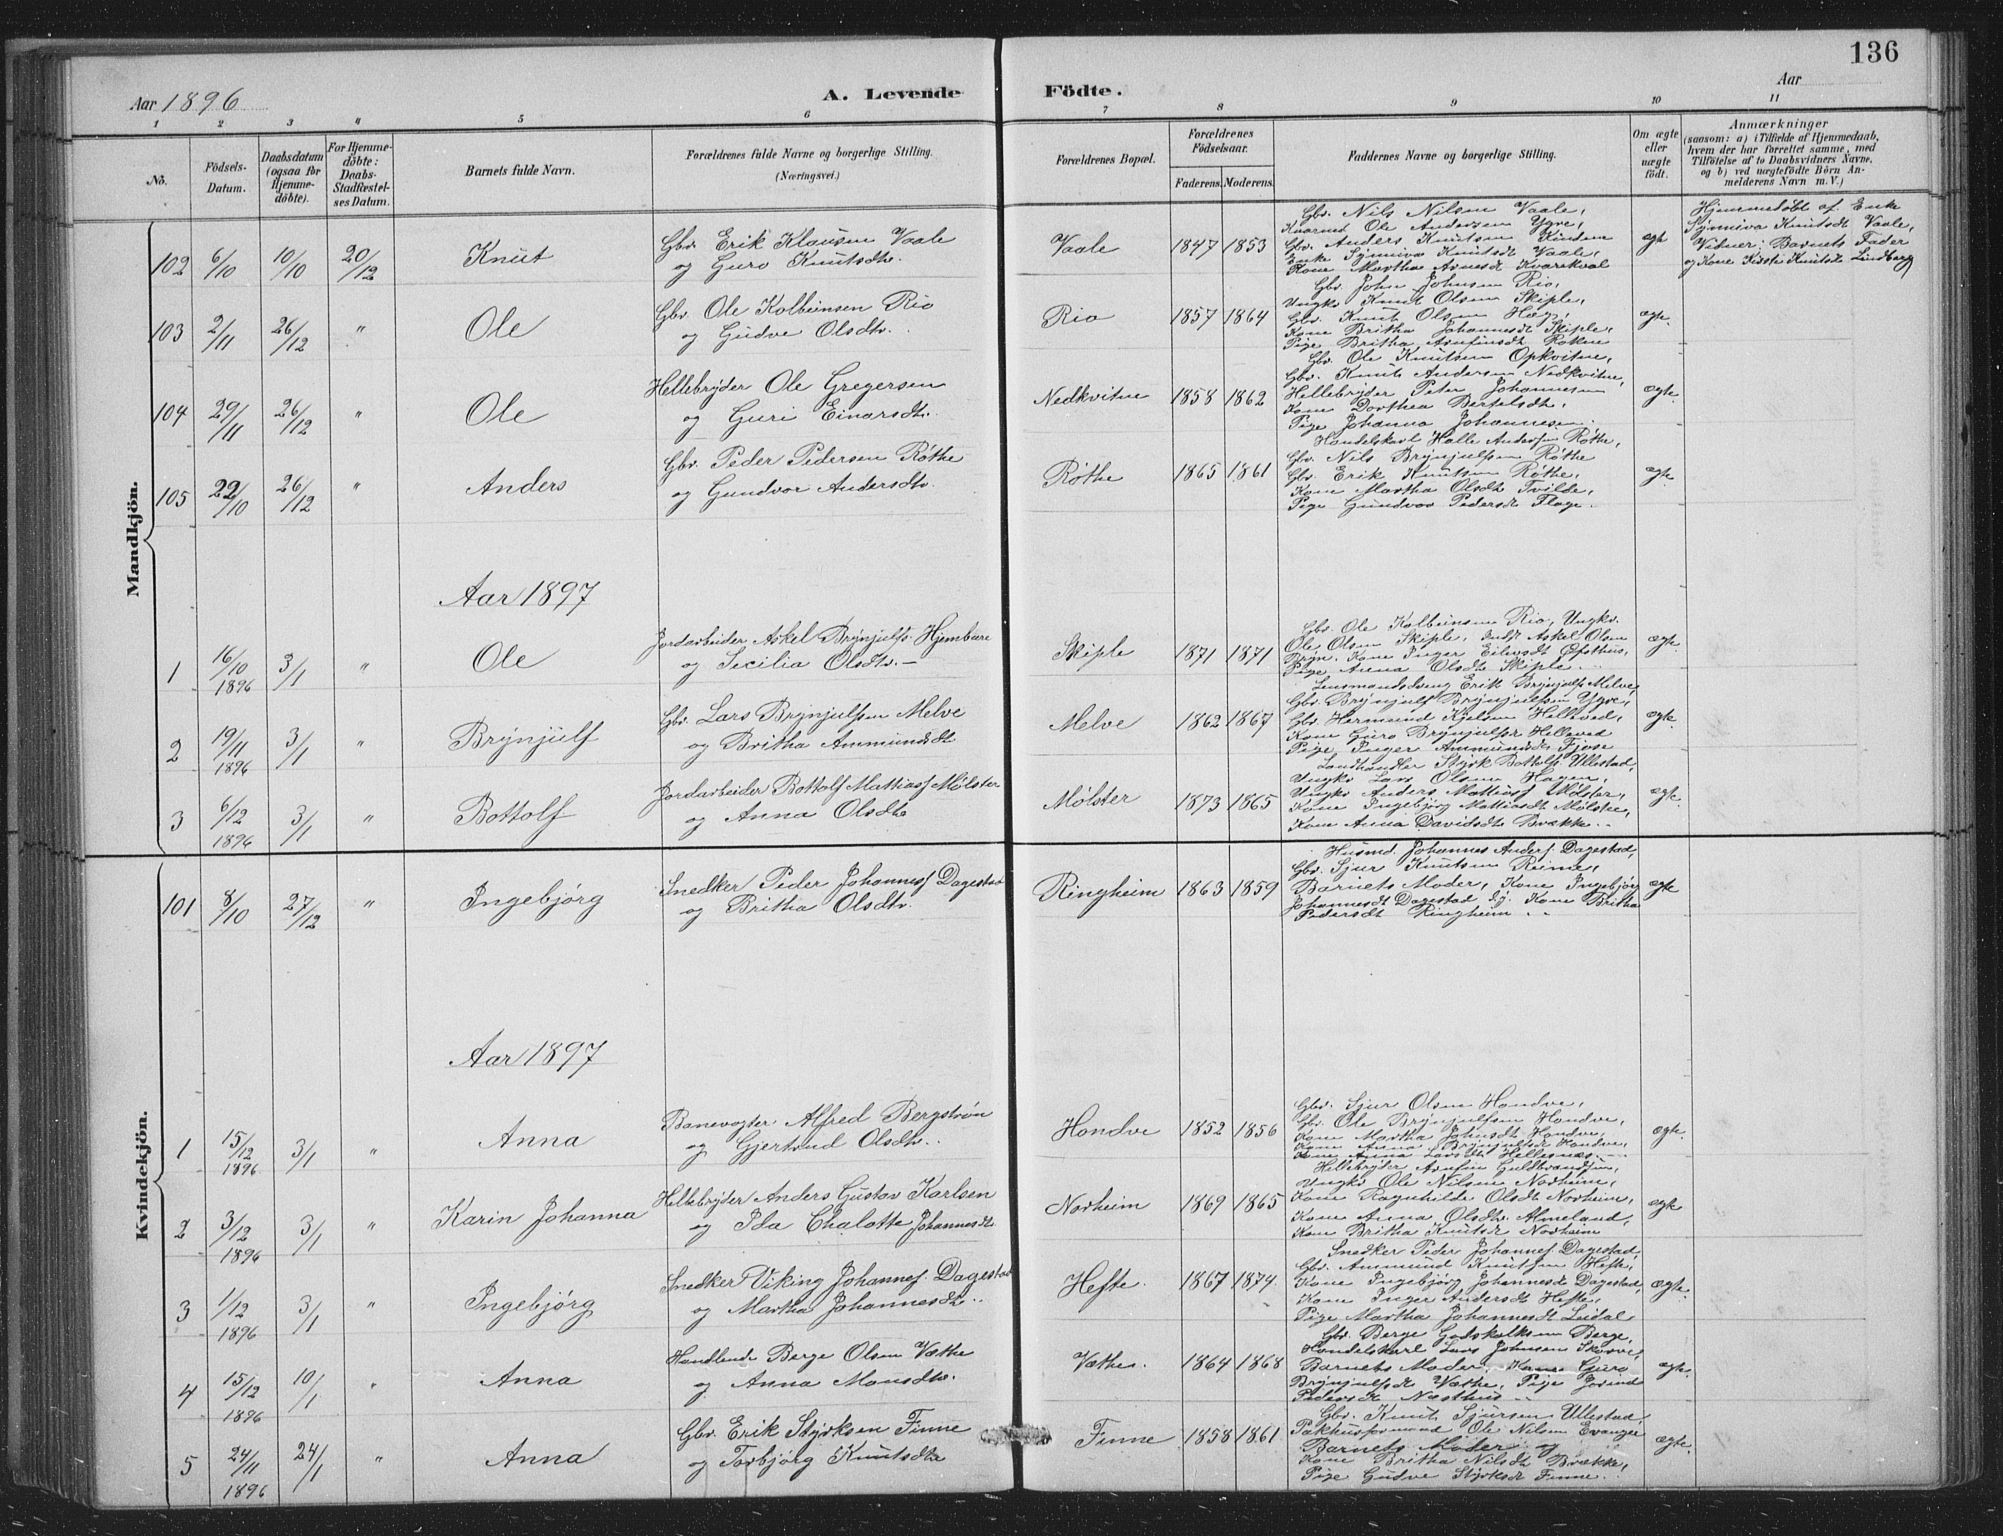 136
Aar 1896
A. Levende
Födte.
Aar
1 2 3 " 5 6 7 8 9 10 11
No.
Födsels-
Datum.
Daabsdatum
(ogsaa for
Hjemme-
döbte).
For Hjemme-
döbte:
Daabs-
Stadfæstel-
ses Datum.
Barnets fulde Navn.
Forældrenes fulde Navne og borgerlige Stilling.
(Næringsvei.)
Forældrenes Bopæl.
Forældrenes
Födselsaar.
Faderens.
Moderens.
Faddernes Navne og borgerlige Stilling.
Om ægte
eller
uægte
födt.
Anmærkninger
(saasom: a) i Tilfælde af Hjemmedaab,
hvem der har forrettet samme, med
Tilföielse af to Daabsvidners Navne,
og b) ved uægtefödte Börn An-
melderens Navn m. V.)
Mandkjön.
102 6/10 10/10 20/12 Knut
Gbr. Erik Klausen Vaale
og Guro Knutsdtr.
Vaale 1847 1853
Gbr. Nils Nilsen Vaale,
Ole Andersen Ygre,
Gbr. Anders Knutsen Kindem
Enke Synneva Knutsdt Vaale,
Kone Martha Arnesdt Kvarekval
ægte
Hjemmedöbt af Enke
Synneva Knutsdt Vaale,
Vidner: Barnets Fader
og Kone Kirsti Knutsdt Lindberg
103 2/11 26/12 " Ole
Gbr. Ole Kolbeinsen Rio
og Gudve Olsdtr.
Rio 1857 1864
Gbr. John Johnsen Rio,
Ungkr Knut Olsen Skiple,
Gbr. Knut Olsen Hæg,
Kone Britha Johannesdt Skiple,
Pige Britha Arnfinsdt Röken
ægte.
104 29/11 26/12 " Ole
Hellebryder Ole Gregersen
og Guri Einarsdtr.
Nedkvitne 1858 1862
Gbr. Ole Knutsen Opkvitne,
Gbr. Knut Andersen Nedkvitne,
Hellebryder Peter Johannesen
Kone Dorthea Bertelsdt,
Pige Johanna Johannesen.
ægte.
105 22/10 26/12 " Anders
Gbr. Peder Pedersen Röthe
og Gundvor Andersdtr.
Röthe 1865 1861
Handelskarl Halle Andersen Röthe,
Gbr. Nils Brynjulfsen Röthe
Gbr. Erik Knutsen Röthe,
Kone Martha Olsdt Tvilde,
Pige Gundvor Pedersdt Flage.
ægte.
Aar 1897
1 16/10 1896 3/1 " Ole
Jordarbeider Askel Brynjulfs. Hjembære
og Secilia Olsdtr.
Skiple 1871 1871
Gbr. Ole Kolbeinsen Rio, Ungkr.
Ole Olsen Skiple, Askel Olsen
Bryn. Kone Inger Eilevsdt Öfsthus,
Pige Anna Olsdt Skiple
ægte.
2 19/11 1896 3/1 " Brynjulf
Gbr. Lars Brynjulfsen Melve
og Britha Ammundsdt
Melve 1862 1867
Lensmandsdreng Erik Brynjulfs. Melve,
Gbr. Brynjulf Brynjulfsen Ygre,
Gbr. Hermund Kjelsen Helleved,
Kone Guro Brynjulfsdt Helleved
Pige Inger Ammundsdt Fjose
ægte
3 6/12 1896 3/1 " Bottolf
Jordarbeider Bottolf Mattiasf Mölster
og Anna Olsdtr
Mölster 1873 1865
Landhandler Styrk Bottolfs Ullestad,
Ungkr Lars Olsen Hagen,
Ungkr Anders Mattiasf Mölster,
Kone Ingebjörg Mattiasdt Mölster,
Kone Anna Davidsdt Brække.
ægte.
Kvindekjön.
101 8/10 27/12 " Ingebjörg
Snedker Peder Johannesf Dagestad
og Britha Olsdtr.
Ringheim 1863 1859
Husmd. Johannes Andersf Dagestad,
Gbr. Sjur Knutsen Reime,
Barnets Moder, Kone Ingebjörg
Johannesdt Dagestad, Kone Britha
Pedersdt Ringheim
ægte
Aar 1897
1 15/12 1896 3/1 " Anna
Banevogter Alfred Bergströn
og Gjertrud Olsdtr.
Hondve 1852 1856
Gbr. Sjur Olsen Hondve,
Gbr. Ole Brynjulfsen Hondve,
Kone Martha Johnsdt Hondve,
Kone Anna Brynjulfsdt Hondve,
Kone Anna Larsdt Hellesnæs.
ægte.
2 3/12 1896 3/1 " Karin Johanna
Hellebryder Anders Gustav Karlsen
og Ida Chalotte Johannesdt
Norheim 1869 1865
Hellebryder Arnfin Guldbrandsen,
Ungkr Ole Nilsen Norheim,
Kone Ragnhilde Olsdt Norheim,
Kone Anna Olsdtr. Almeland,
Kone Britha Knutsdt Norheim
ægte
3 1/12 1896 3/1 " Ingebjörg
Snedker Viking Johannesf. Dagestad
og Martha Johannesdt.
Hefte. 1867 1874.
Snedker Peder Johannesf Dagestad,
Gbr. Ammund Knutsen Hefte,
Kone Ingebjörg Johannesdt Dagestad,
Kone Inger Andersdt Hefte,
Pige Martha Johannesdt Lidal
ægte.
4 15/12 1896 10/1 " Anna
Handlende Berge Olsen Væthe
og Anna Monsdtr.
Væthe. 1864 1868
Gbr. Berge Godskalksen Berge,
Handelskarl Lars Johnsen Skorve,
Barnets Moder, Kone Guro
Brynjulfsdt Væthe, Pige Jorind
Pedersdt Næsthus
ægte.
5 24/11 1896 24/1 " Anna
Gbr. Erik Styrksen Finne
og Torbjörg Knutsdtr
Finne 1858 1861
Gbr. Knut Sjursen Ullestad,
Pakhusformand Ole Nilsen Evanger
Barnets Moder og
Kone Britha Nilsdt Brække,
Pige Gudve Styrksdt Finne.
ægte.